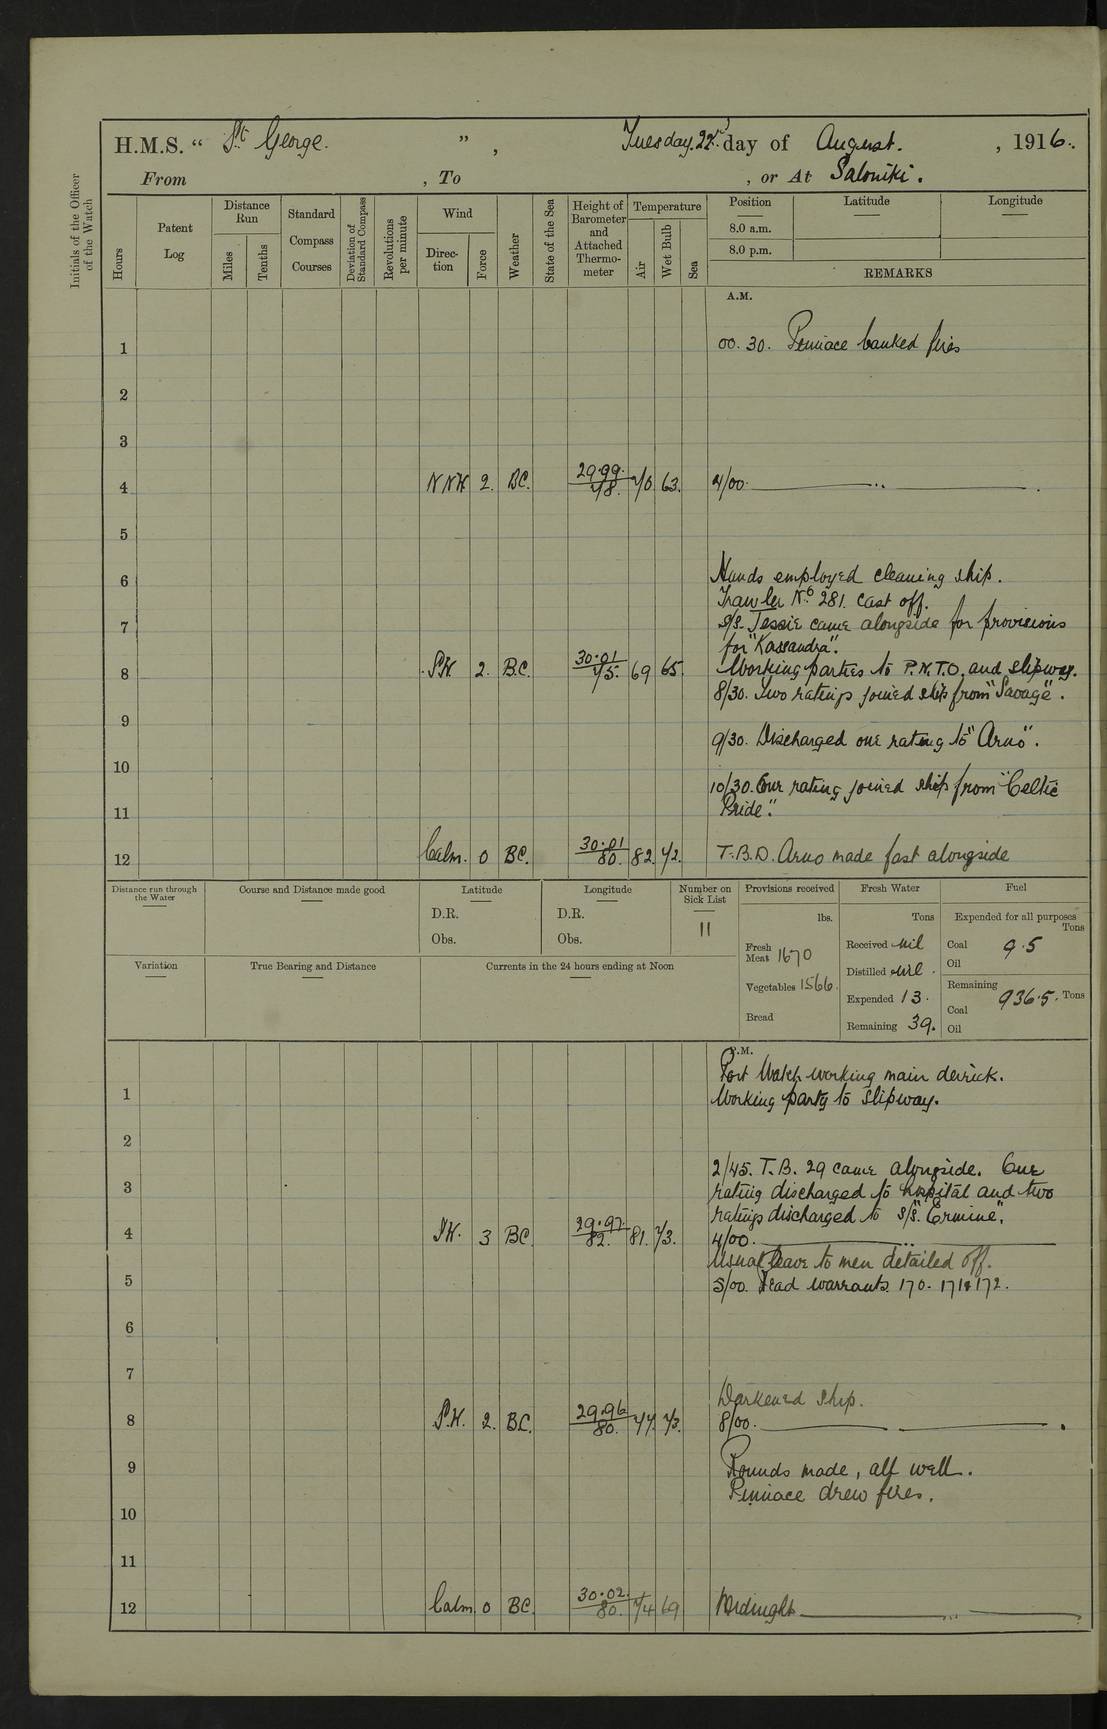 H.M.S. “ St George. ” , Tuesday. 22nd day of August. , 1916.
From , To , or At Saloniki.
Initials of the Officer of the Watch
Hours
Patent Log
Distance Run
Miles
Tenths
Standard Compass Courses
Deviation of Standard Compass
Revolutions per minute
Wind
Direc-tion
Force
Weather
State of the Sea
Height of Barometer and Attached Thermo-meter
Temperature
Air
Wet Bulb
Sea
Position
8.0 a.m.
8.0 p.m.
Latitude
Longitude
REMARKS
A.M.
1 00.30. Pinnace banked fires
2
3
4 NNW 2. BC. 29.99. 78. 70 63. 4/00.
5
6 Hands employed cleaning ship.
Trawler No 281. cast off.
7 S/S. Jessie came alongside for provisions
for "Kassandra".
8 SW. 2. B.C. 30.01 75. 69 65. Working parties to P.N.T.O. and slipway.
8/30. Two ratings joined ship from "Savage".
9
9/30. Discharged one rating to "Arno".
10
10/30. One rating joined ship from "Celtic
11 Pride".
12 Calm. 0 BC. 30.01 80. 82. 72. T.B.D. Arno made fast alongside
Distance run through the Water
Course and Distance made good
Latitude
D.R.
Obs.
Longitude
D.R.
Obs.
Number on Sick List
11
Provisions received
lbs.
Fresh Meat 1670
Vegetables 1566.
Bread
Fresh Water
Tons
Received nil
Distilled nil.
Expended 13.
Remaining 39.
Fuel
Expended for all purposes
Tons
Coal 9.5
Oil
Remaining
Coal 936.5. Tons
Oil
Variation
True Bearing and Distance
Currents in the 24 hours ending at Noon
P.M.
Port Watch working main derrick.
1 Working party to slipway.
2
2/45. T.B. 29 came alongside. One
3 rating discharged to hospital and two
ratings discharged to S/S. "Ermine".
4 SW. 3 BC 29.97. 82. 81. 73. 4/00.
Usual leave to men detailed off.
5 5/00. Read warrants. 170. 171 & 172.
6
7
Darkened ship.
8 S.W. 2. B.C. 29.96 80. 77. 73. 8/00.
9 Rounds made, all well.
Pinnace drew fires.
10
11
12 Calm 0 BC. 30.02. 80. 74 69 Midnight